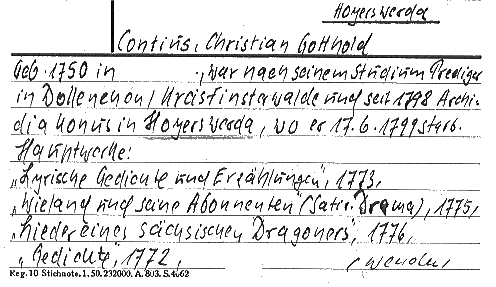 Hoyerswerda
Contius, Christian Gotthold
Geb. 1750 in , war nach seinem Studium Prediger
in Dollenchen / Kreis Finsterwalde und seit 1798 Archi-
diakonus in Hoyerswerda, wo er 17.6.1799 starb.
Hauptwerke:
„Lyrische Gedichte und Erzählungen", 1773,
„Wieland und seine Abonnenten" (Satir. Drama), 1775,
„Lieder eines sächsischen Dragoners", 1776,
„Gedichte", 1772,
(wenden)
Reg. 10 Stichnote. 1. 50. 232000. A. 803. S. 4662